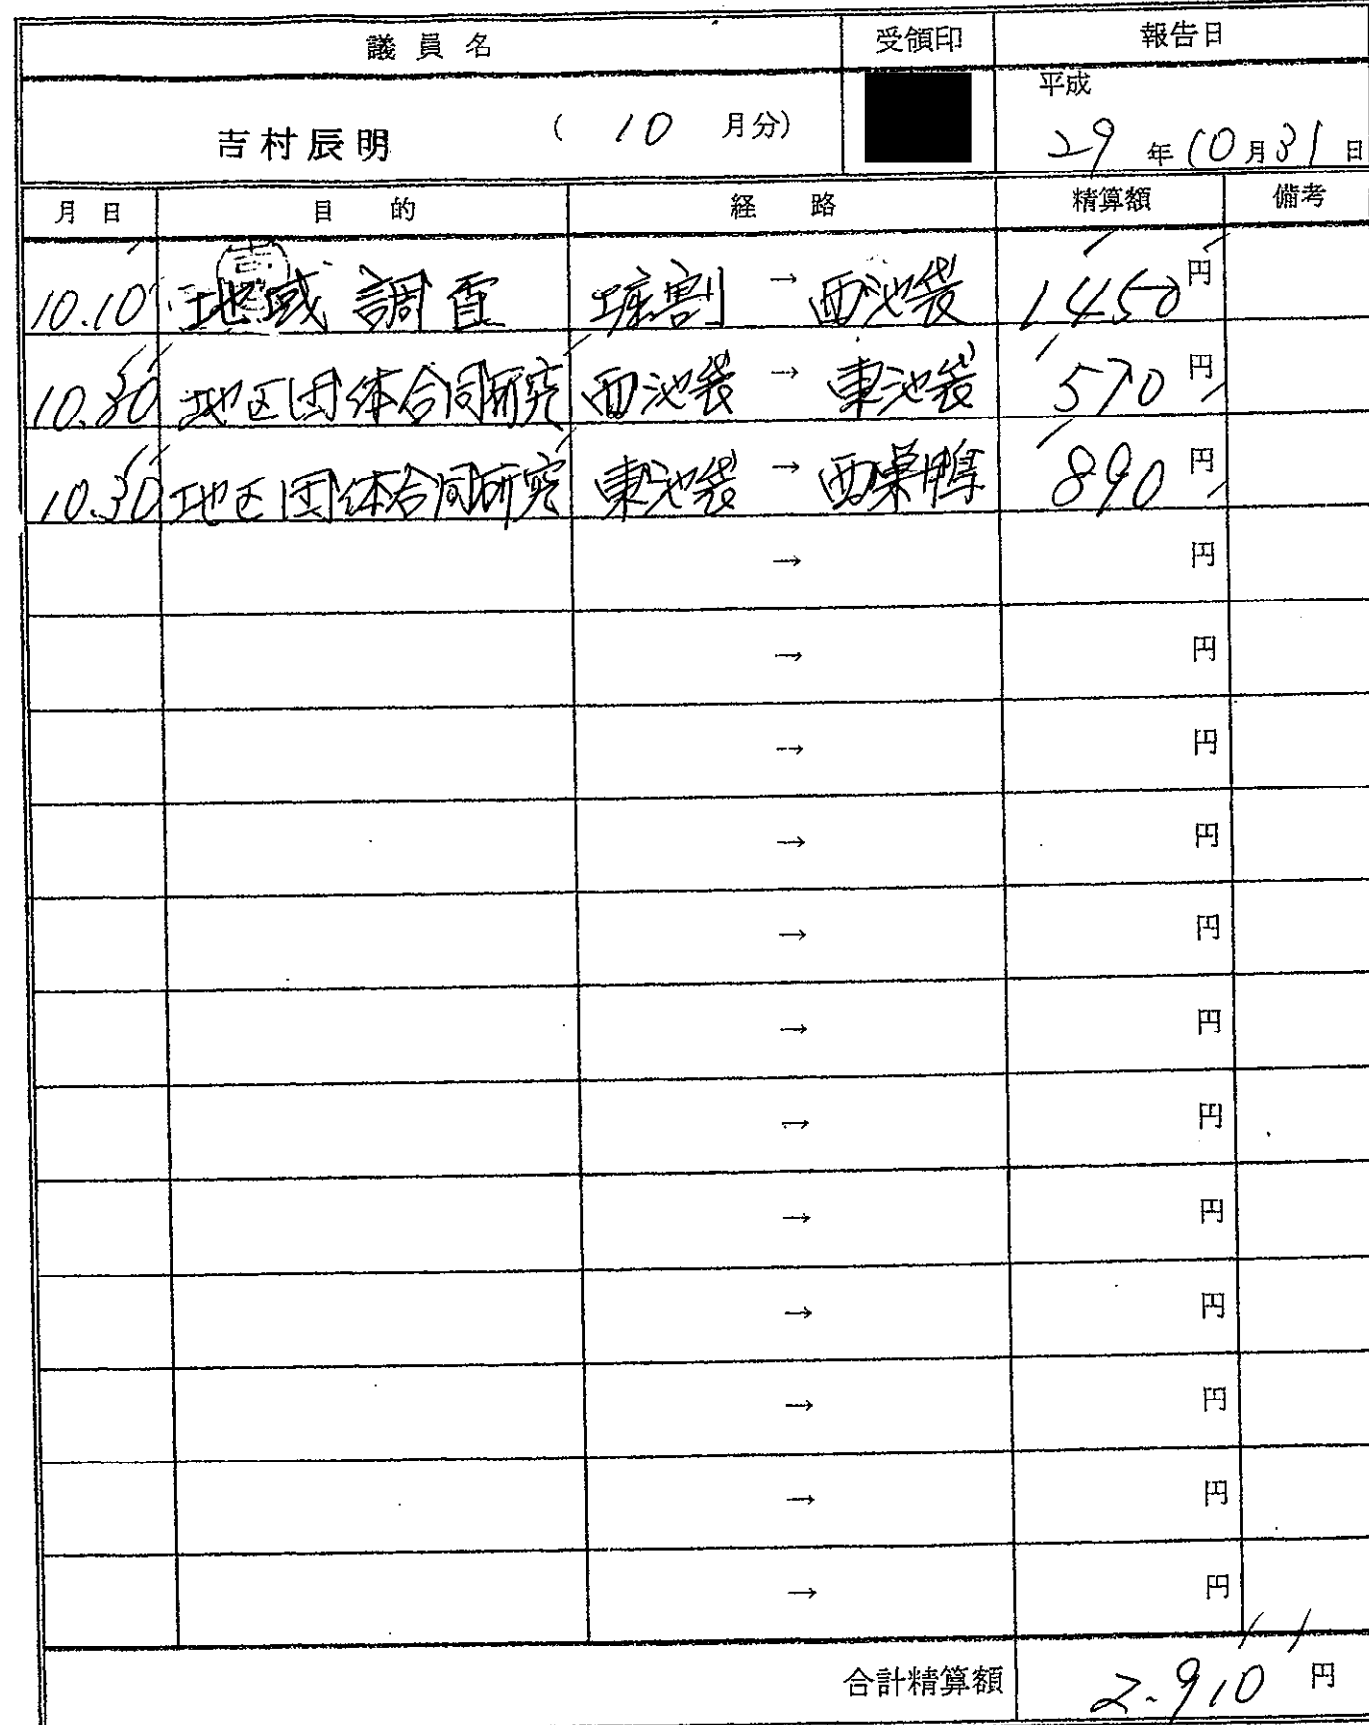 議員名 受領印 報告日
吉村辰明 ( 10 月分) 平成 29 年 10 月 31 日
月日 目的 経路 精算額 備考
10.10 地域調査 堀割 → 西池袋 1450 円
10.30 地区団体合同研究 西池袋 → 東池袋 570 円
10.30 地区団体合同研究 東池袋 → 西巣鴨 890 円
→ 円
→ 円
→ 円
→ 円
→ 円
→ 円
→ 円
→ 円
→ 円
→ 円
→ 円
→ 円
合計精算額 2.910 円